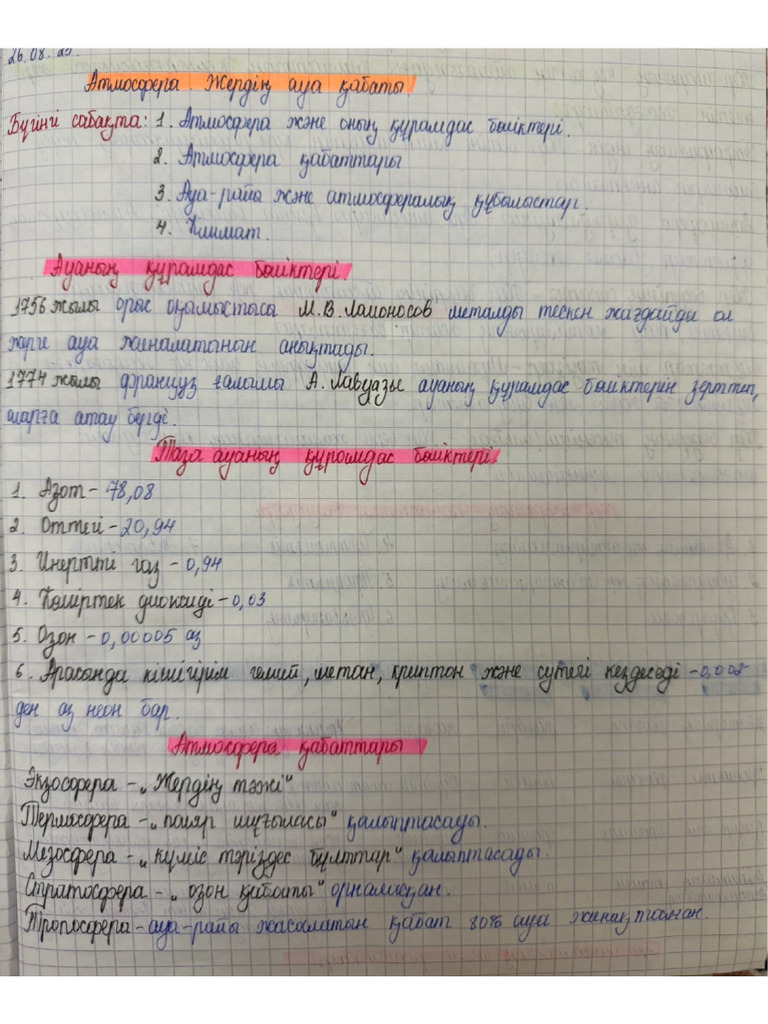 26.08.25
Атмосфера. Жердің ауа қабаты.
Бүгінгі сабақта: 1. Атмосфера және оның құрамдас бөліктері.
2. Атмосфера қабаттары
3. Ауа-райы және атмосфералық құбылыстар.
4. Климат.
Ауаның құрамдас бөліктері.
1756 жылы орыс оқымыстысы М.В. Ломоносов металды тескен жағдайда ол
жерге ауа жиналатынын анықтады.
1774 жылы француз ғалымы А. Лавуазье ауаның құрамдас бөліктерін зерттеп,
оларға атау берді.
Таза ауаның құрамдас бөліктері.
1. Азот - 78,08
2. Оттегі - 20,94
3. Инертті газ - 0,94
4. Көміртек диоксиді - 0,03
5. Озон - 0,00005 аз
6. Арасында кішігірім гелий, метан, криптон және сутегі кездеседі - 0,002
ден аз неон бар.
Атмосфера қабаттары
Экзосфера - „Жердің тәжі"
Термосфера - „поляр шұғыласы" қалыптасады.
Мезосфера - „күміс тәріздес бұлттар" қалыптасады.
Стратосфера - „озон қабаты" орналасқан.
Тропосфера - ауа-райы жасалатын қабат 80% ауа жинақталған.